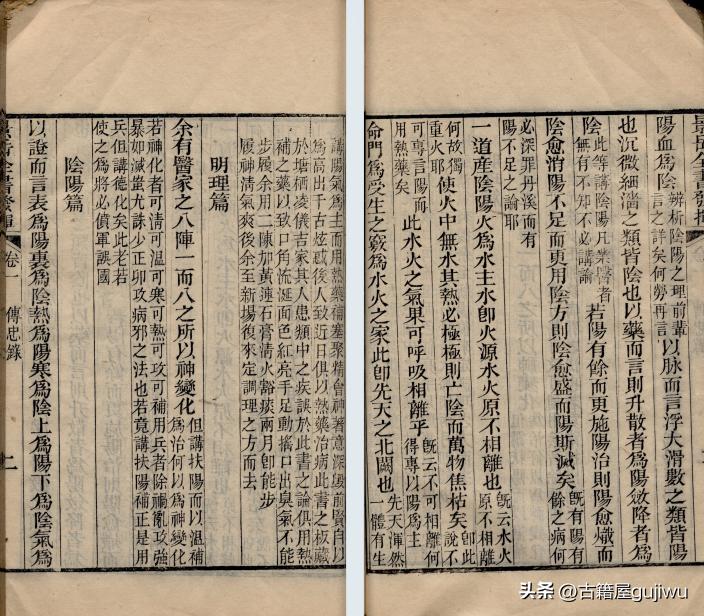 景岳全書發揮
陽血為陰辨析陰陽之理前輩言之詳矣何勞再言以脈而言浮大滑數之類皆陽
也沉微細濇之類皆陰也以藥而言則升散者為陽斂降者為
陰此等講陰陽凡業醫者無有不知不必講論若陽有餘而更施陽治則陽愈熾而
陰愈消陽不足而更用陰方則陰愈盛而陽斯滅矣既有陽有餘之病何
必深罪丹溪而有陽不足之論耶
一道產陰陽火為水主水即火源水火原不相離也既云水火原不相離
何故獨重火耶使火中無水其熱必極極則亡陰而萬物焦枯矣即此說不
可專言陽而用熱藥矣此水火之氣果可呼吸相離乎既云不可相離何得專以陽為主
命門為受生之竅為水火之家此即先天之北闕也先天渾然一體有生
講陽氣為主而用熱藥補塞聚精會神著意深毀前賢自以
為高出千古炫惑後人致近日俱以熱藥治病此書之板藏
於塘栖凌儀吉家其人患類中之疾誤於此書之論俱用熱
補之藥以致口角流涎面色紅亮手足動搖口出臭氣不能
步履余用二陳加黃連石膏清火豁痰兩月即能步
履神清氣爽後余至新場復來定調理之方而去
明理篇
余有醫家之八陣一而八之所以神變化但講扶陽而以溫補為治何以為神變化
若神化者可清可溫可寒可熱可攻可補用兵者除禍亂攻強
暴如減蚩尤誅少正卯攻病邪之法也若竟講扶陽補正是用
兵但講德化矣此老若
使之為將必僨軍誤國
陰陽篇
以證而言表為陽裏為陰熱為陽寒為陰上為陽下為陰氣為
景岳全書發揮 卷一 傳忠錄 二
头条 @古籍屋gujiwu